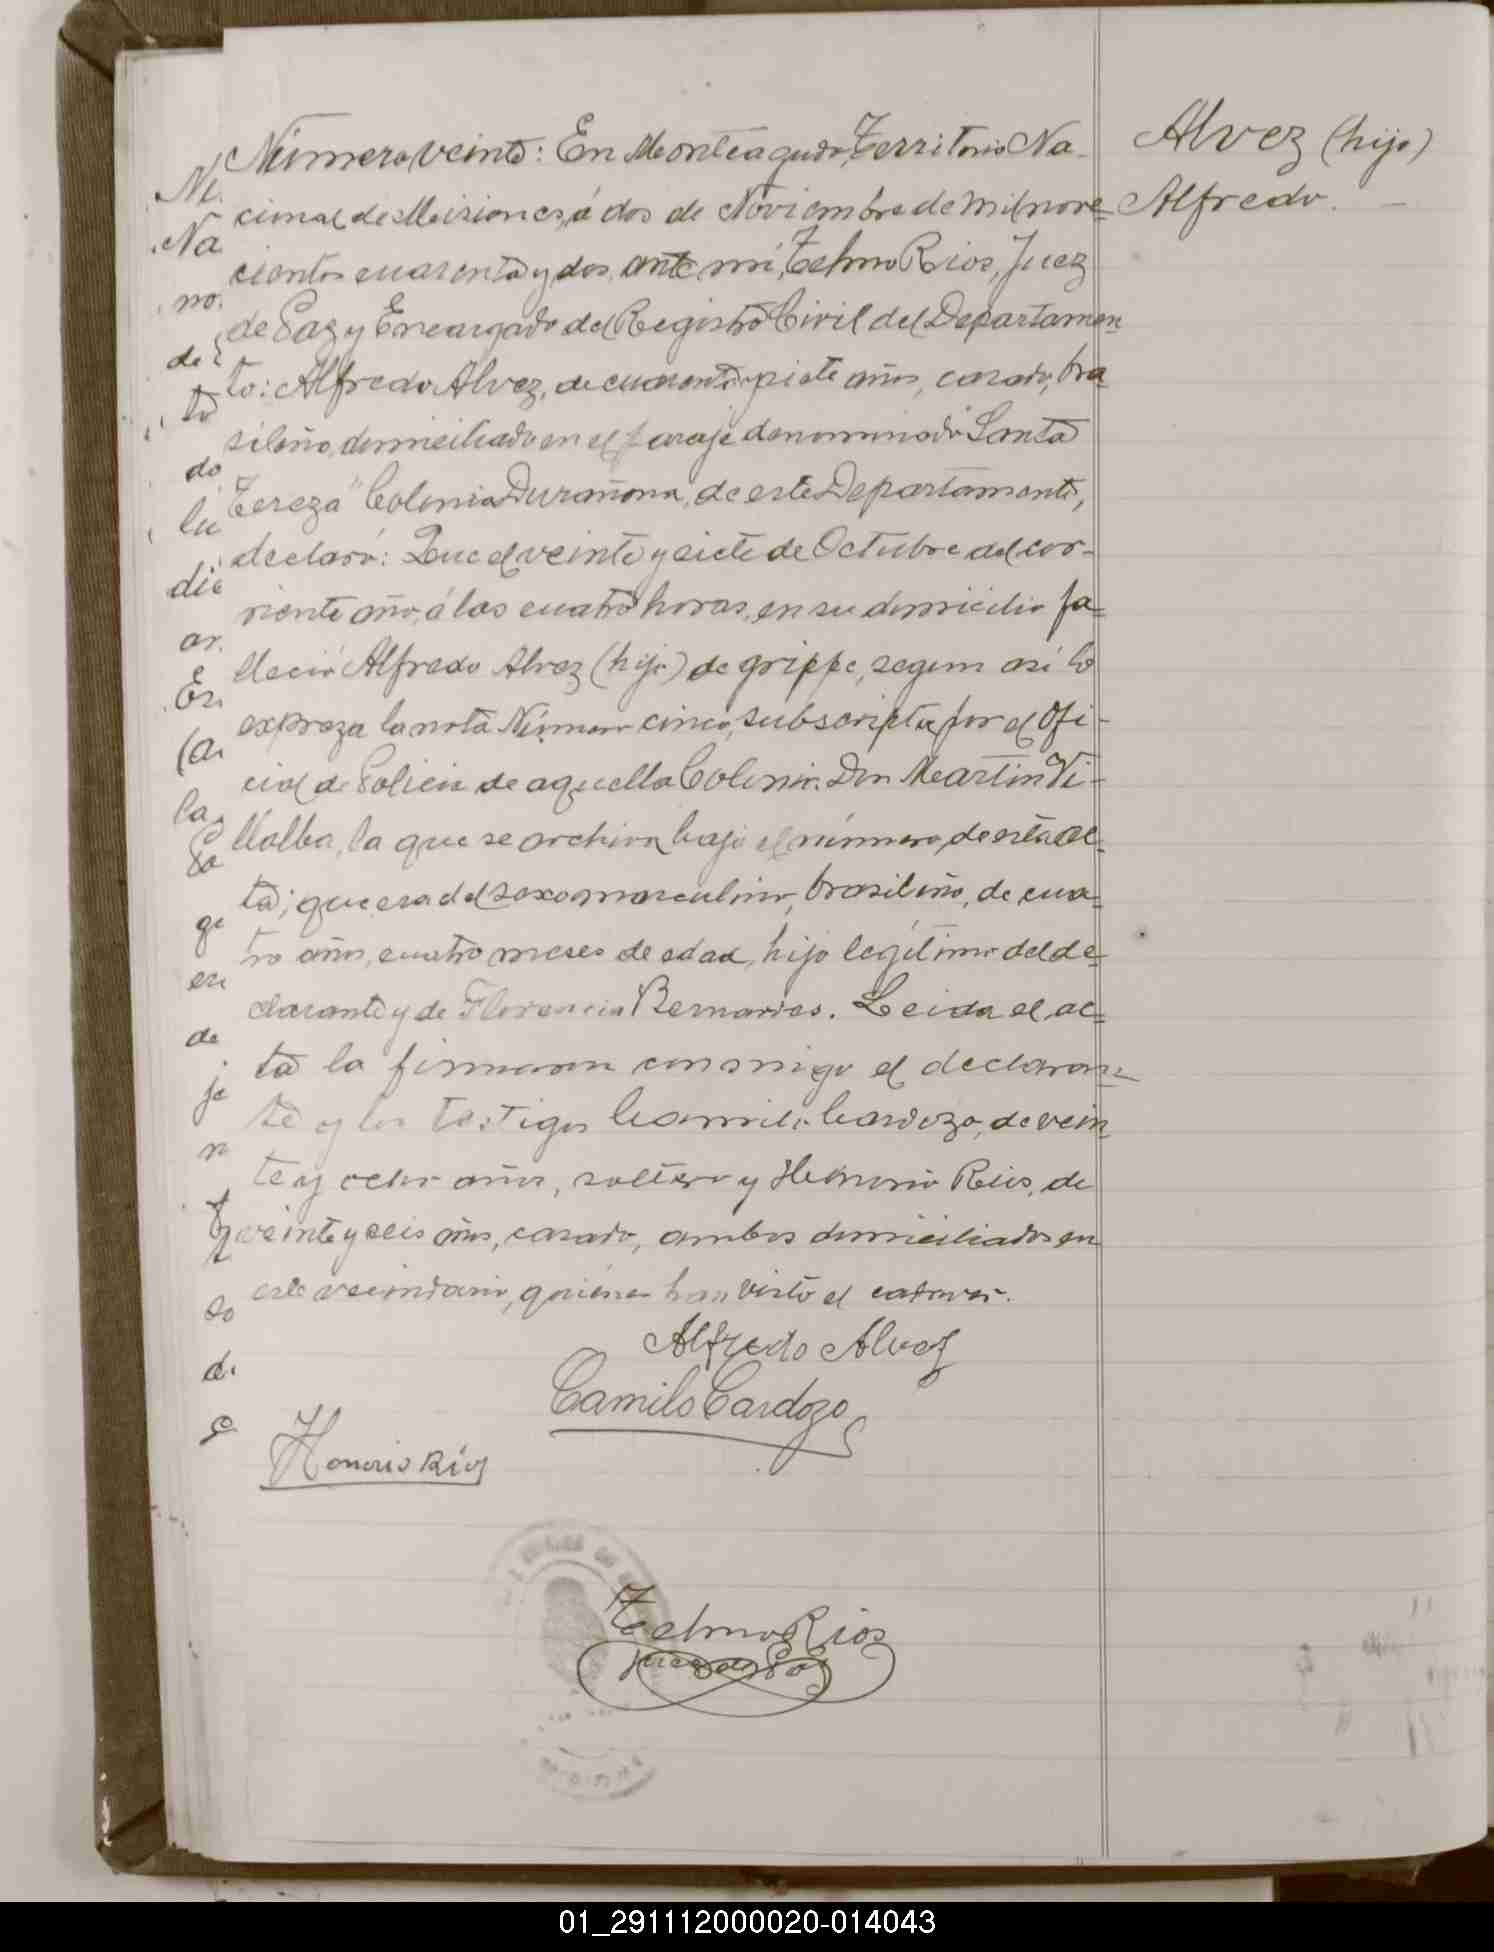 Alvez (hijo)
Alfredo.
Número veinte: En Monteagudo, Territorio Na-
cional de Misiones, á dos de Noviembre de mil nove=
cientos cuarenta y dos, ante mí, Telmo Rios, Juez
de Paz y Encargado del Registro Civil del Departamen
to: Alfredo Alvez, de cuarenta y siete años, casado, bra
sileño, domiciliado en el paraje denominado "Santa
Tereza" Colonia Durañona, de este Departamento,
declaró: Que el veinte y siete de Octubre del cor-
riente año, á las cuatro horas, en su domicilio fa=
lleció Alfredo Alvez (hijo) de grippe, segun así lo
expreza la nota Número cinco, subscripta por el Ofi-
cial de Policia de aquella Colonia. Don Martin Vi-
llalba, la que se archiva bajo el número de esta ac=
ta; que era del sexo masculino, brasileño, de cua=
tro años, cuatro meses de edad, hijo legítimo del de=
clarante y de Florencia Bernardes. Leida el ac=
ta la firmaron conmigo el declaran=
te y los testigos Camilo Cardozo, de vein
te y ocho años, soltero y Honorio Rios, de
veinte y seis años, casado, ambos domiciliados en
este vecindario, quienes han visto el cadaver.
Alfredo Alvez
Camilo Cardozo
Honorio Ríos
Telmo Rios
Juez de Paz
01_291112000020-014043